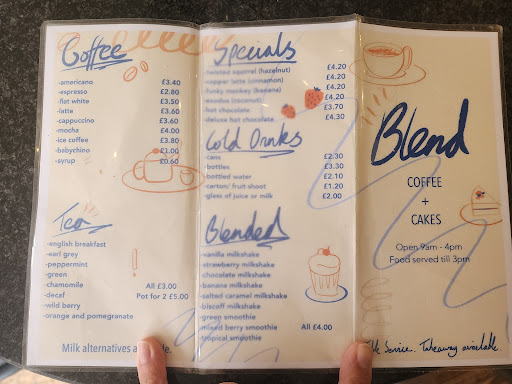 Coffee
-americano £3.40
-espresso £2.80
-flat white £3.50
-latte £3.60
-cappuccino £3.60
-mocha £4.00
-ice coffee £3.80
-babychino £1.00
-syrup £0.60
Tea
-english breakfast
-earl grey
-peppermint
-green
-chamomile All £3.00
-decaf Pot for 2 £5.00
-wild berry
-orange and pomegranate
Milk alternatives
Specials
-twisted squirrel (hazelnut) £4.20
-copper latte (cinnamon) £4.20
-funky monkey (banana) £4.20
-exodus (coconut) £4.20
-hot chocolate £3.70
-deluxe hot chocolate £4.30
Cold Drinks
-cans £2.30
-bottles £3.30
-bottled water £2.10
-carton/ fruit shoot £1.20
-glass of juice or milk £2.00
Blended
-vanilla milkshake
-strawberry milkshake
-chocolate milkshake
-banana milkshake
-salted caramel milkshake
-biscoff milkshake
-green smoothie
-mixed berry smoothie All £4.00
-tropical smoothie
Blend
COFFEE
+
CAKES
Open 9am - 4pm
Food served till 3pm
Service. Takeaway available.